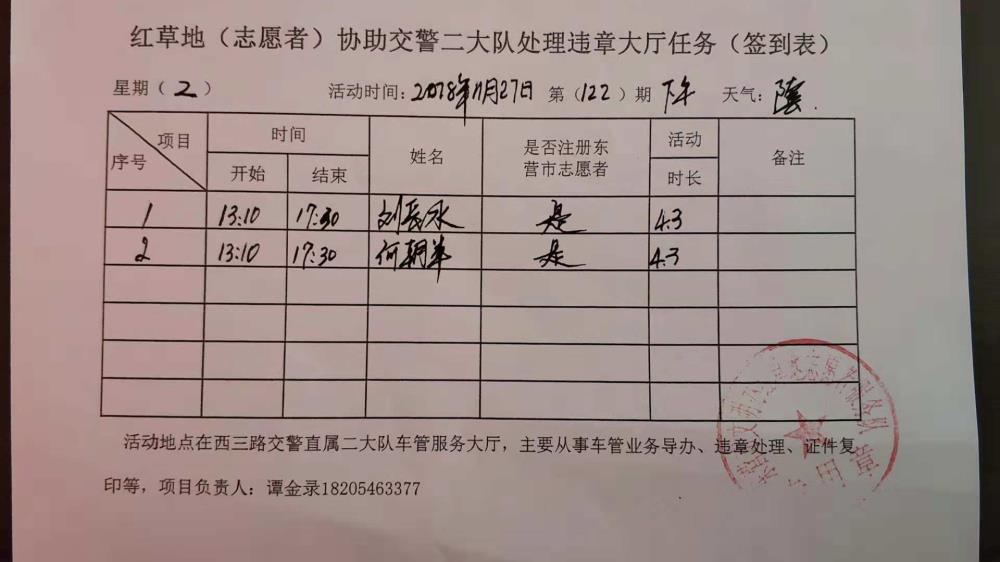 红草地（志愿者）协助交警二大队处理违章大厅任务（签到表）
星期（2） 活动时间：2018年11月27日 第（122）期 下午 天气：阴
项目 序号 时间 姓名 是否注册东营市志愿者 活动时长 备注
开始 结束
1 13:10 17:30 刘长水 是 4.3
2 13:10 17:30 何朝 是 4.3
活动地点在西三路交警直属二大队车管服务大厅，主要从事车管业务导办、违章处理、证件复
印等，项目负责人：谭金录18205463377